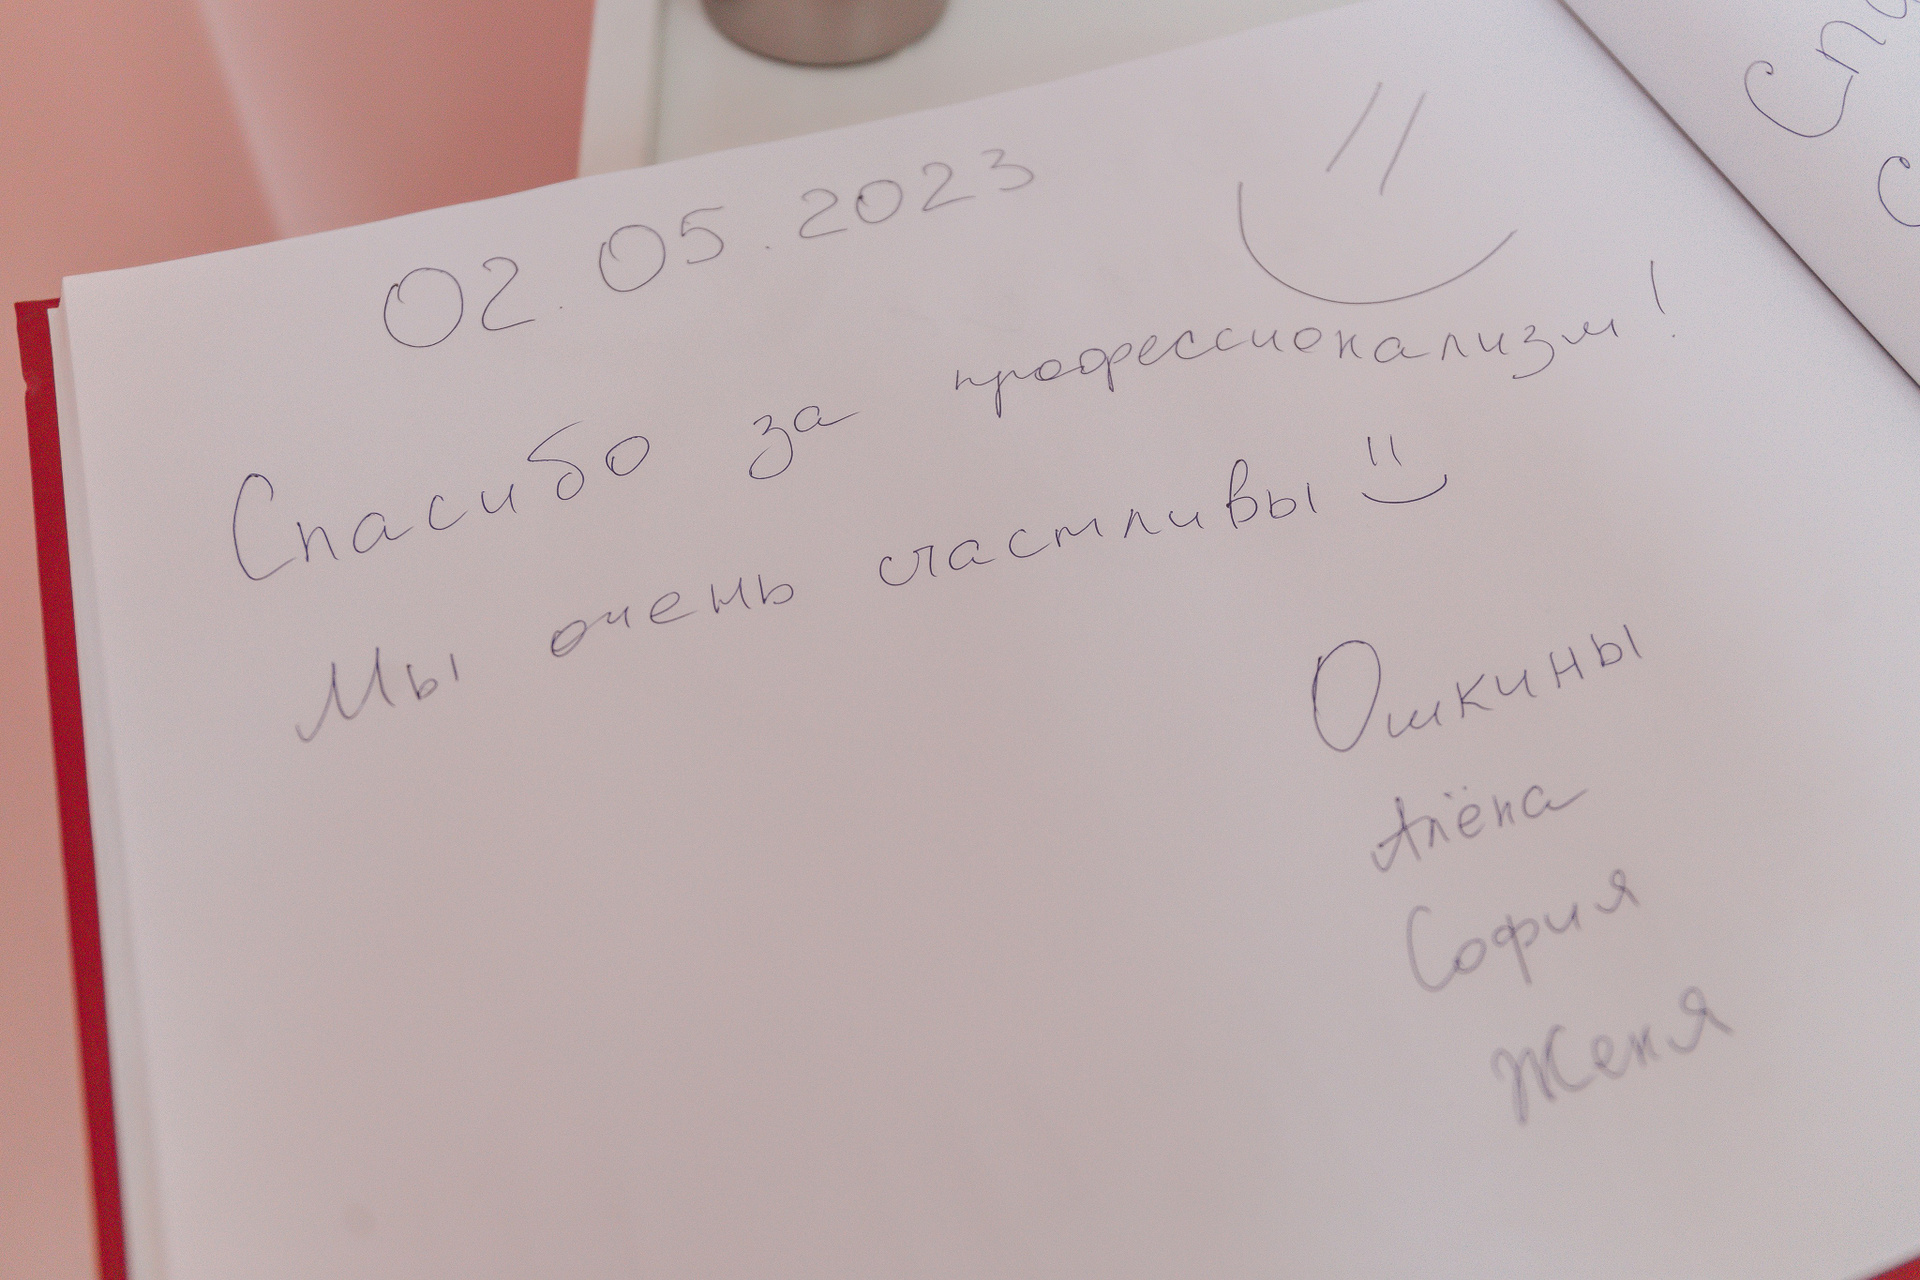 02.05.2023
Спасибо за профессионализм!
Мы очень счастливы
Ошкины
Алёна
София
Женя